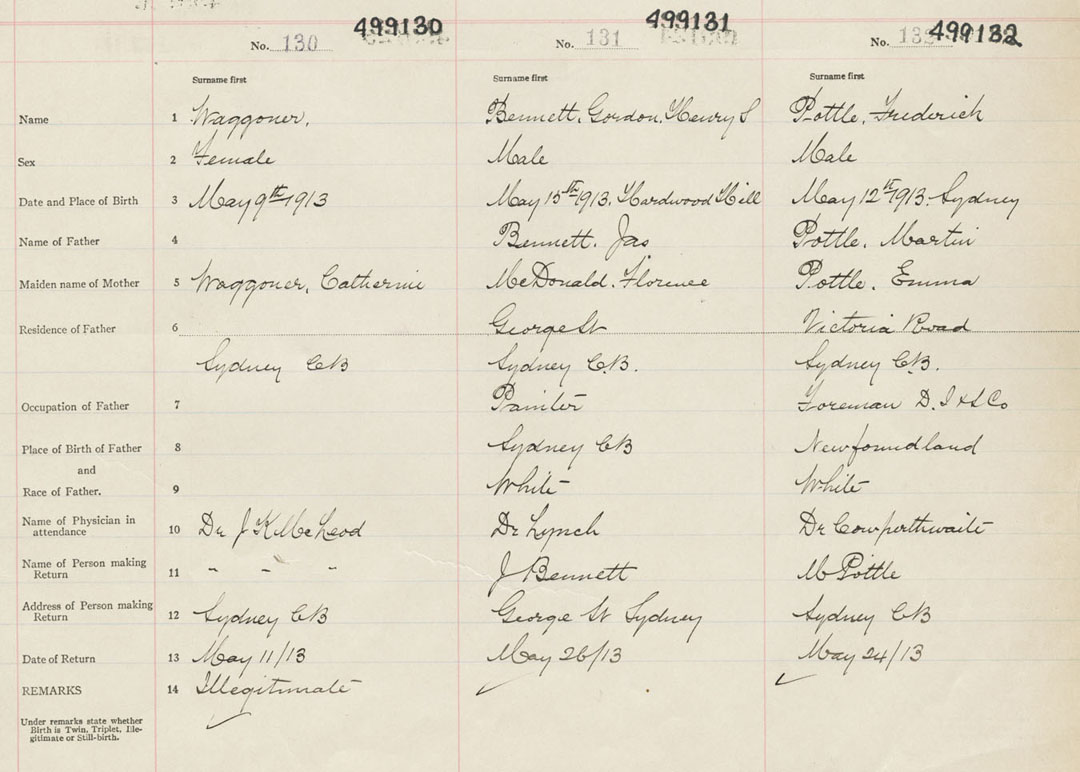 499130 499131 499132
No. 130 No. 131 No. 132
Surname first Surname first Surname first
Name 1 Waggoner, Bennett, Gordon, Henry S Pottle, Frederick
Sex 2 Female Male Male
Date and Place of Birth 3 May 9th 1913 May 15th 1913. Hardwood Hill May 12th 1913. Sydney
Name of Father 4 Bennett. Jas Pottle. Martin
Maiden name of Mother 5 Waggoner, Catherine McDonald. Florence Pottle. Emma
Residence of Father 6 George St Victoria Road
Sydney CB Sydney C.B. Sydney C.B.
Occupation of Father 7 Painter Foreman D. I & S Co
Place of Birth of Father 8 Sydney CB Newfoundland
and
Race of Father. 9 White White
Name of Physician in
attendance 10 Dr J K McLeod Dr Lynch Dr Cowperthwaite
Name of Person making
Return 11 " " " J Bennett M Pottle
Address of Person making
Return 12 Sydney CB George St Sydney Sydney CB
Date of Return 13 May 11/13 May 26/13 May 24/13
REMARKS 14 Illegitimate
Under remarks state whether
Birth is Twin, Triplet, Ille-
gitimate or Still-birth.